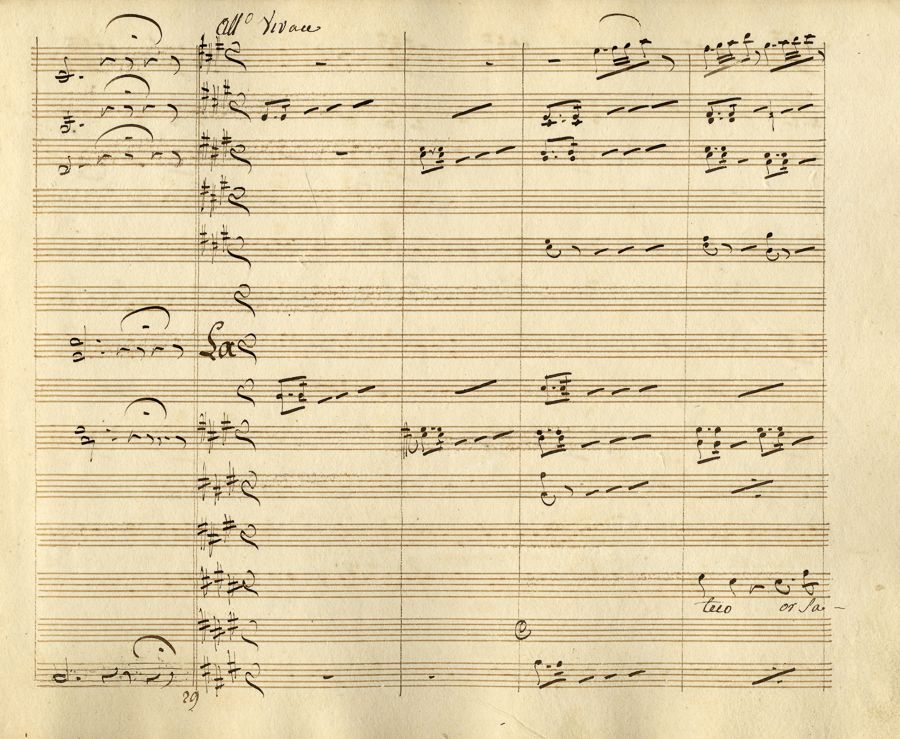 All° Vivace
La
teco or sa-
29